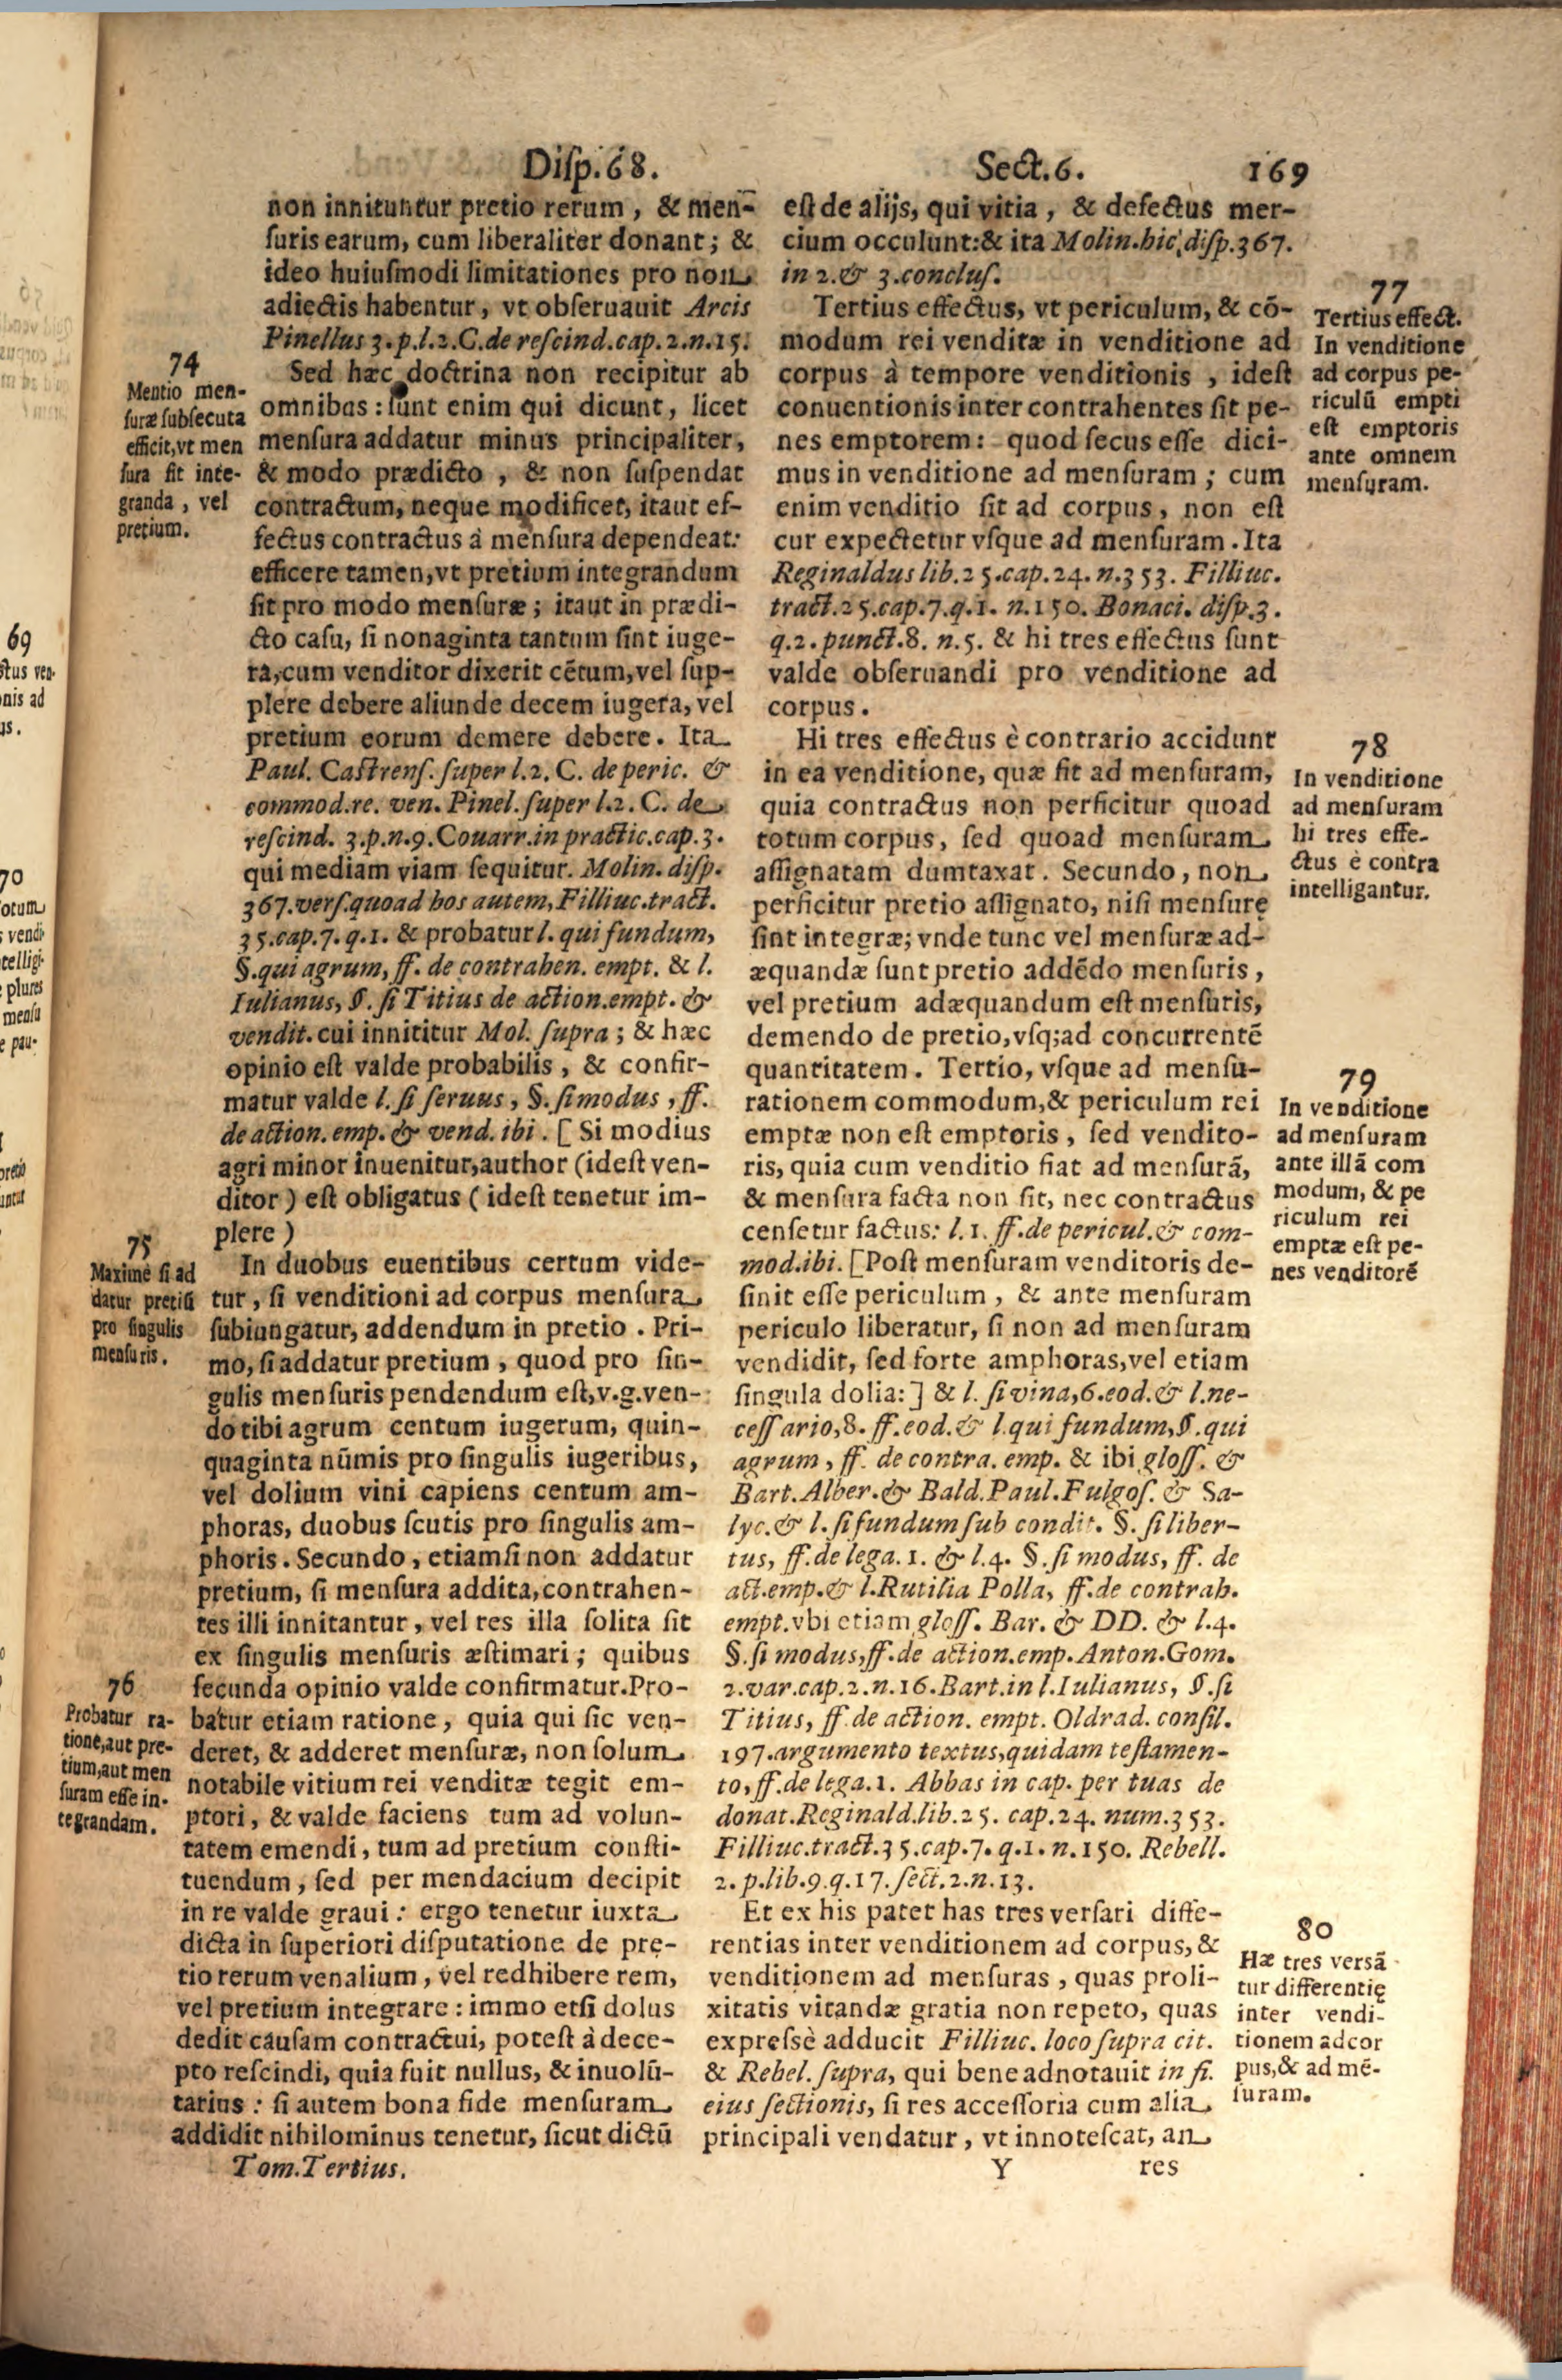 Disp.68. Sect.6. 169
non innituntur pretio rerum, & men-
suris earum, cum liberaliter donant; &
ideo huiusmodi limitationes pro non
adiectis habentur, vt obseruauit Arcis
Pinellus 3.p.l.2.C.de rescind.cap.2.n.15.
74
Mentio men-
suræ subsecuta
efficit,vt men
sura fit inte-
granda, vel
pretium.
Sed hæc doctrina non recipitur ab
omnibus: sunt enim qui dicunt, licet
mensura addatur minus principaliter,
& modo prædicto, & non suspendat
contractum, neque modificet, itaut ef-
fectus contractus à mensura dependeat:
efficere tamen,vt pretium integrandum
sit pro modo mensuræ; itaut in prædi-
cto casu, si nonaginta tantum sint iuge-
ra,cum venditor dixerit cētum,vel sup-
plere debere aliunde decem iugera, vel
pretium eorum demere debere. Ita
Paul. Castrens. super l.2. C. de peric. &
commod.re. ven. Pinel. super l.2. C. de
rescind. 3.p.n.9.Couarr.in practic.cap.3.
qui mediam viam sequitur. Molin. disp.
367.vers.quoad hos autem, Filliuc.tract.
35.cap.7.q.1. & probatur l. qui fundum,
§.qui agrum, ff. de contrahen. empt. & l.
Iulianus, §. si Titius de action.empt. &
vendit. cui innititur Mol. supra; & hæc
opinio est valde probabilis, & confir-
matur valde l. si seruus, §. si modus, ff.
de action. emp. & vend. ibi. [Si modius
agri minor inuenitur,author (idest ven-
ditor) est obligatus (idest tenetur im-
plere)
75
Maximè si ad
datur pretiū
pro singulis
mensuris.
In duobus euentibus certum vide-
tur, si venditioni ad corpus mensura
subiungatur, addendum in pretio. Pri-
mo, si addatur pretium, quod pro sin-
gulis mensuris pendendum est,v.g.ven-
do tibi agrum centum iugerum, quin-
quaginta nūmis pro singulis iugeribus,
vel dolium vini capiens centum am-
phoras, duobus scutis pro singulis am-
phoris. Secundo, etiamsi non addatur
pretium, si mensura addita,contrahen-
tes illi innitantur, vel res illa solita sit
ex singulis mensuris æstimari; quibus
secunda opinio valde confirmatur.Pro-
76
Probatur ra-
tione,aut pre-
tium,aut men
suram esse in-
tegrandam.
batur etiam ratione, quia qui sic ven-
deret, & adderet mensuræ, non solum
notabile vitium rei venditæ tegit em-
ptori, & valde faciens tum ad volun-
tatem emendi, tum ad pretium consti-
tuendum, sed per mendacium decipit
in re valde graui: ergo tenetur iuxta
dicta in superiori disputatione de prę-
tio rerum venalium, vel redhibere rem,
vel pretium integrare: immo etsi dolus
dedit causam contractui, potest à dece-
pto rescindi, quia fuit nullus, & inuolū-
tarius: si autem bona fide mensuram
addidit nihilominus tenetur, sicut dictū
Tom.Tertius.
est de alijs, qui vitia, & defectus mer-
cium occulunt:& ita Molin.hic,disp.367.
in 2.& 3.conclus.
77
Tertius effect.
In venditione
ad corpus pe-
riculū empti
est emptoris
ante omnem
mensuram.
Tertius effectus, vt periculum, & cō-
modum rei venditæ in venditione ad
corpus à tempore venditionis, idest
conuentionis inter contrahentes sit pe-
nes emptorem: quod secus esse dici-
mus in venditione ad mensuram; cum
enim venditio sit ad corpus, non est
cur expectetur vsque ad mensuram. Ita
Reginaldus lib.25.cap.24.n.353. Filliuc.
tract.25.cap.7.q.1. n.150. Bonaci. disp.3.
q.2.punct.8. n.5. & hi tres effectus sunt
valde obseruandi pro venditione ad
corpus.
78
In venditione
ad mensuram
hi tres effe-
ctus è contra
intelligantur.
Hi tres effectus è contrario accidunt
in ea venditione, quæ fit ad mensuram,
quia contractus non perficitur quoad
totum corpus, sed quoad mensuram
assignatam dumtaxat. Secundo, non
perficitur pretio assignato, nisi mensurę
sint integræ; vnde tunc vel mensuræ ad-
æquandæ sunt pretio addēdo mensuris,
vel pretium adæquandum est mensuris,
demendo de pretio,vsq;ad concurrentē
quantitatem. Tertio, vsque ad mensu-
79
In venditione
ad mensuram
ante illā com
modum, & pe
riculum rei
emptæ est pe-
nes venditorē
rationem commodum,& periculum rei
emptæ non est emptoris, sed vendito-
ris, quia cum venditio fiat ad mensurā,
& mensura facta non sit, nec contractus
censetur factus: l.1. ff.de pericul.& com-
mod.ibi. [Post mensuram venditoris de-
sinit esse periculum, & ante mensuram
periculo liberatur, si non ad mensuram
vendidit, sed forte amphoras,vel etiam
singula dolia:] & l. si vina,6.eod.& l.ne-
cessario,8. ff.eod.& l.qui fundum,§.qui
agrum, ff. de contra. emp. & ibi gloss. &
Bart.Alber.& Bald.Paul.Fulgos. & Sa-
lyc.& l.si fundum sub condit. §. si liber-
tus, ff.de lega. 1. & l.4. §.si modus, ff. de
act.emp.& l.Rutilia Polla, ff.de contrah.
empt.vbi etiam gloss. Bar. & DD. & l.4.
§.si modus,ff.de action.emp.Anton.Gom.
2.var.cap.2.n.16.Bart.in l.Iulianus, §.si
Titius, ff.de action. empt. Oldrad. consil.
197.argumento textus,quidam testamen-
to, ff.de lega.1. Abbas in cap. per tuas de
donat.Reginald.lib.25. cap.24. num.353.
Filliuc.tract.35.cap.7.q.1.n.150. Rebell.
2.p.lib.9.q.17.sect.2.n.13.
80
Hæ tres versā
tur differentię
inter vendi-
tionem ad cor
pus,& ad mē-
suram.
Et ex his patet has tres versari diffe-
rentias inter venditionem ad corpus, &
venditionem ad mensuras, quas proli-
xitatis vitandæ gratia non repeto, quas
expressè adducit Filliuc. loco supra cit.
& Rebel. supra, qui bene adnotauit in fi.
eius sectionis, si res accessoria cum alia
principali vendatur, vt innotescat, an
Y res
69
nis ad
70
otum
vendi-
telligi-
plures
mensu